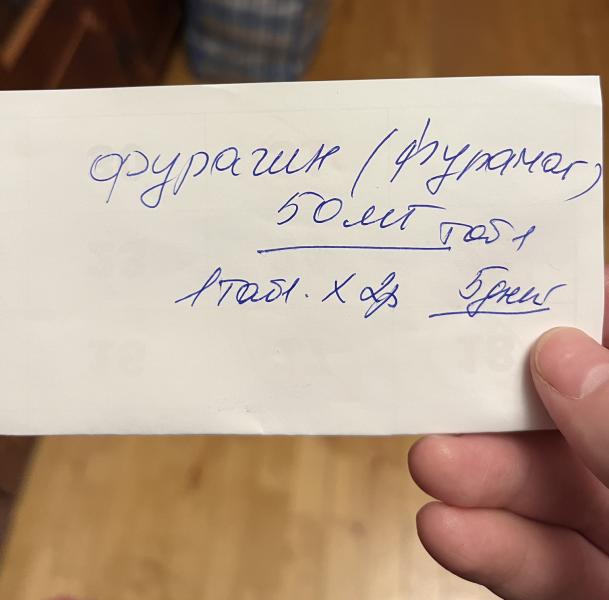 фурагин (фурамаг)
50 мг табл
1 табл. х 2р 5 дней